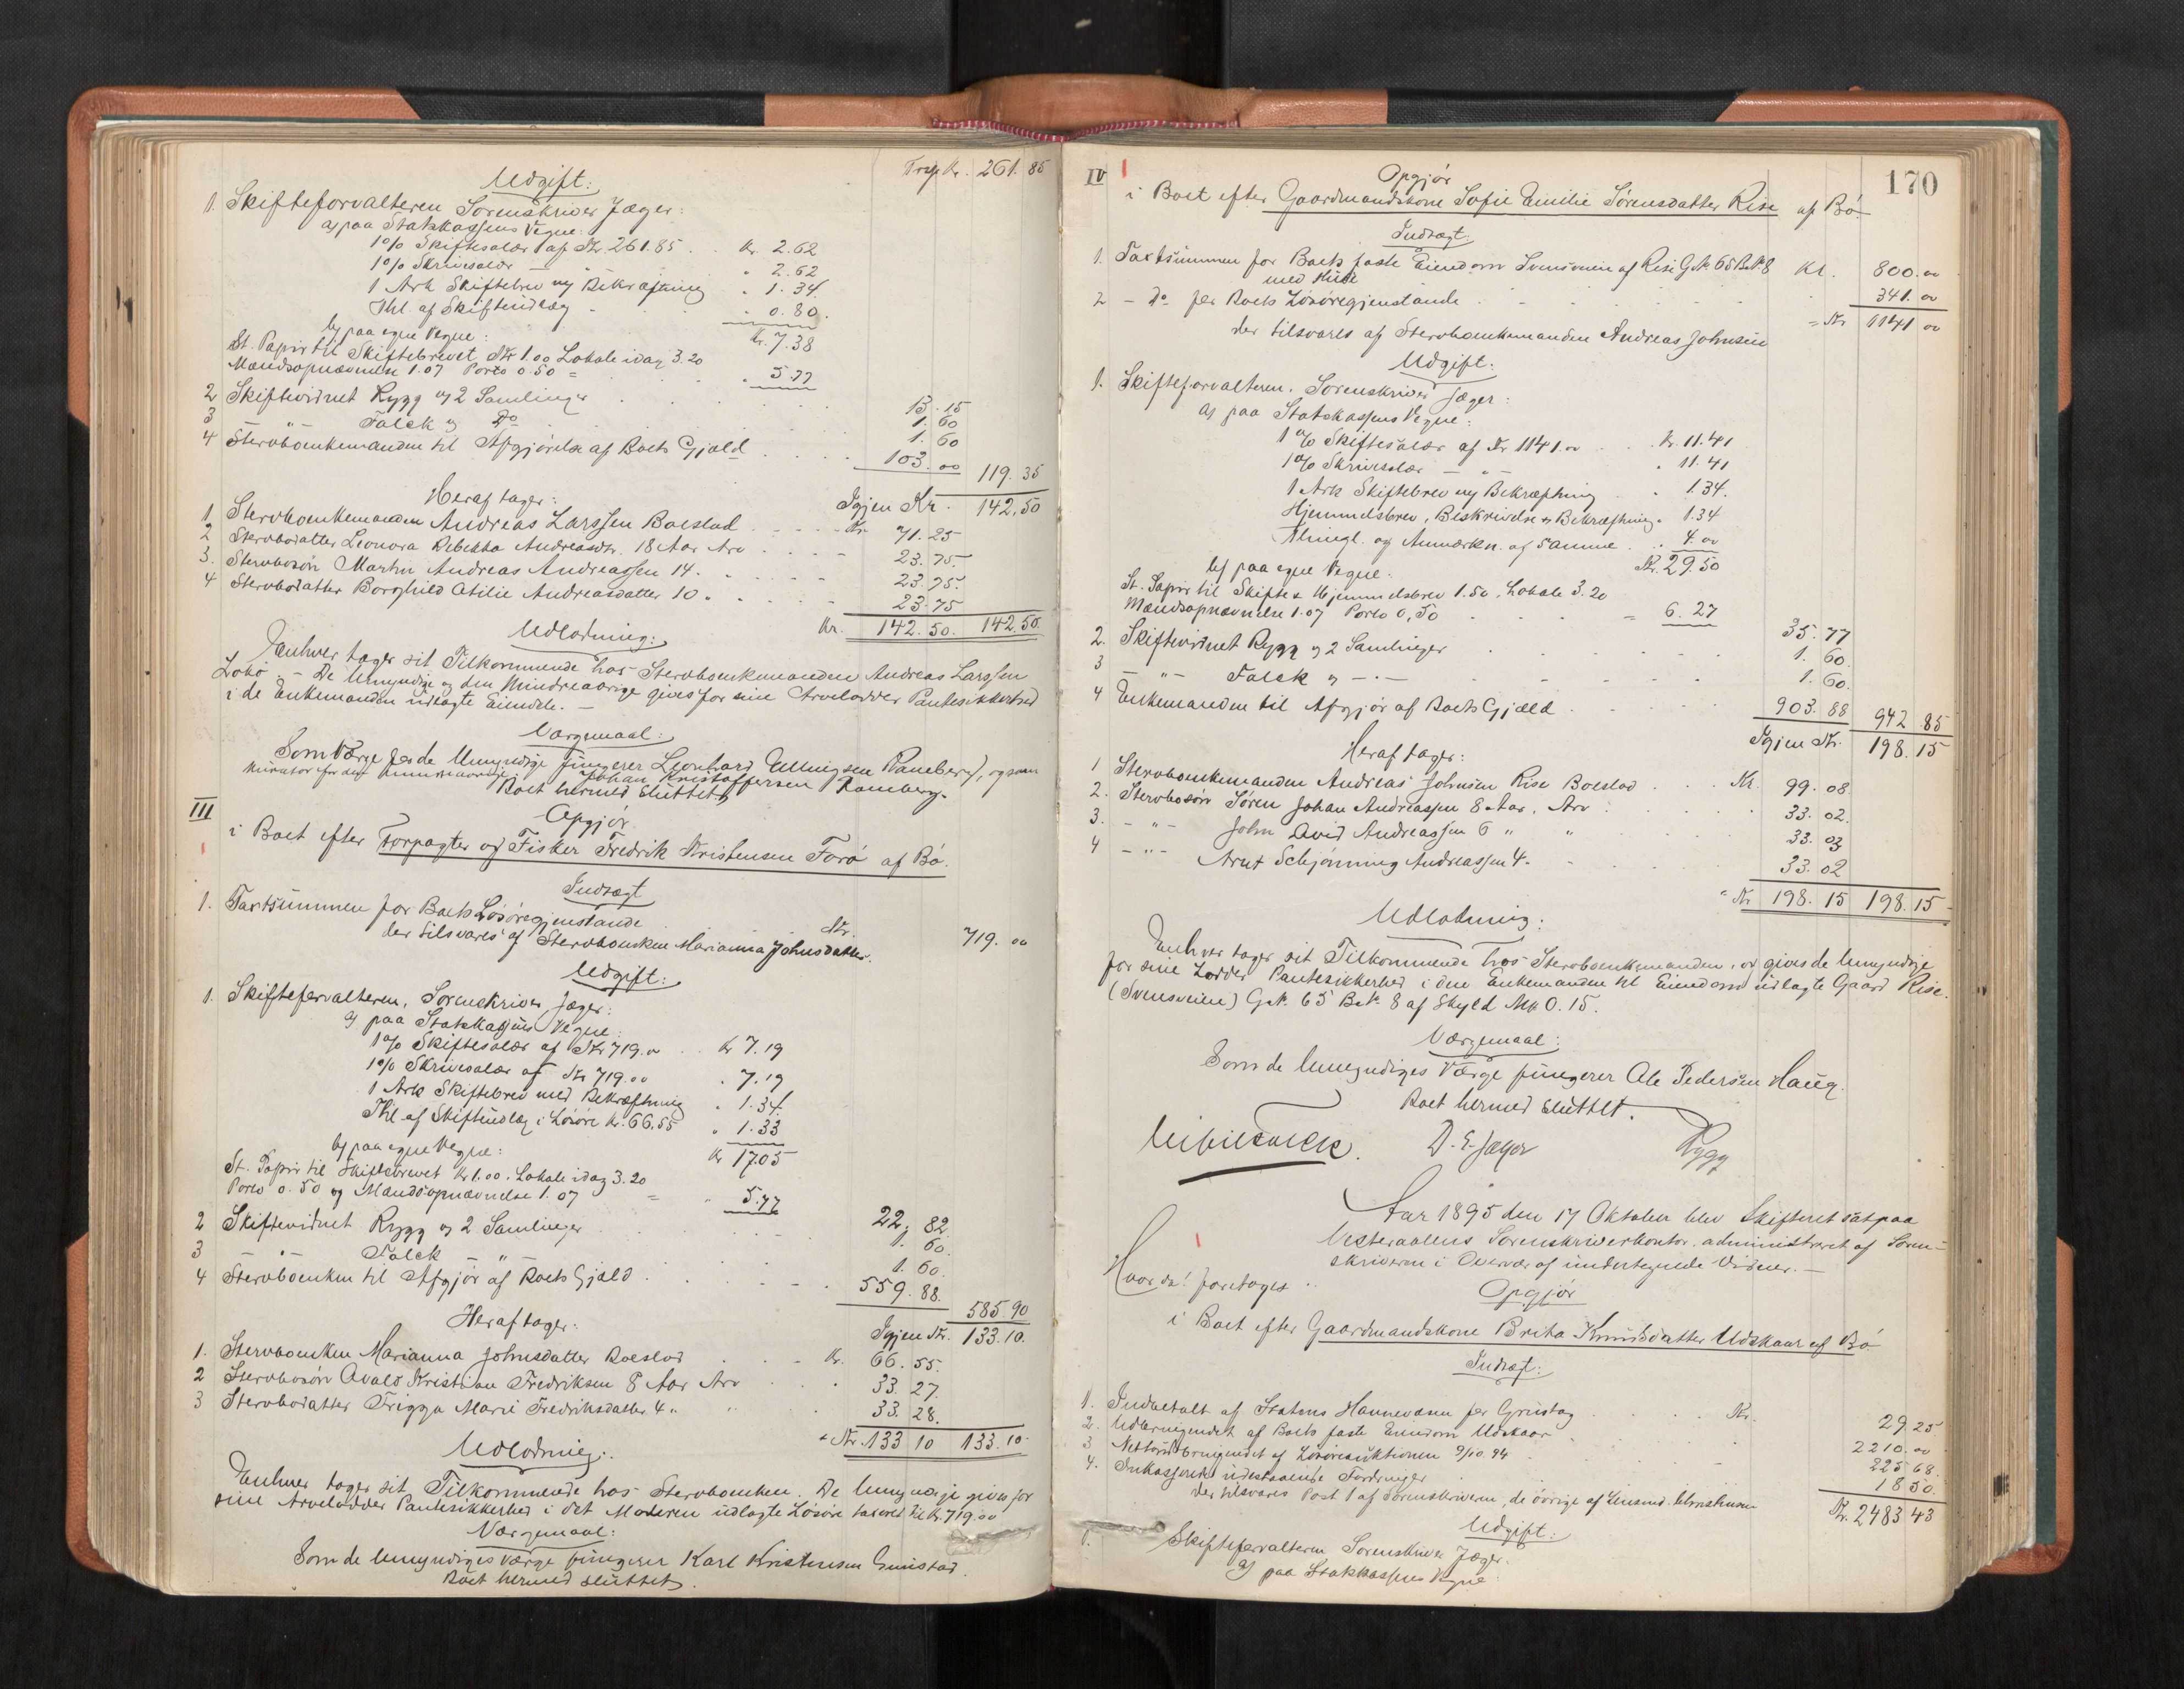 Trsp Kr. 261.85
Udgift:
1. Skifteforvalteren Sorenskriver Jæger:
a) paa Statskassens Vegne:
1% Skiftesalær af Kr. 261.85 . Kr. 2.62
1% Skrivesalær — " 2.62
1 Ark Skiftebrev og Bekræftning " 1.34
Thl. af Skifteudlæg " 0.80.
Kr. 7.38
b) paa egne Vegne:
St. Papir til Skiftebrevet Kr 1.00 Lokale idag 3.20
Mandsopnævnelse 1.07 Porto 0.50 = " 5.77
13.15
2 Skiftevidnet Rygg og 2 Samlinger 1.60
3 — " — Falck og Do 1.60
4 Stervboenkemanden til Afgjørelse af Boets Gjæld 103.00 119.35
Igjen Kr. 142.50
Heraf tager:
1 Stervboenkemanden Andreas Larssen Boeslod Kr. 71.25
2 Stervbodatter Leonora Rebekka Andreasdr. 18 Aar Arv 23.75.
3. Stervbosøn Martin Andreas Andreassen 14 " 23.75.
4 Stervbodatter Borghild Otilie Andreasdatter 10 " 23.75
Kr. 142.50. 142.50.
Udlodning:
Enhver tager sit Tilkommende hos Stervboenkemanden Andreas Larssen
. – De Umyndige og den Mindreaarige gives for sine Arvelodder Pantesikkerhed
i de Enkemanden udlagte Eiendele. —
Værgemaal:
Som Værge for de Umyndige fungerer Leonhard Ellingsen Ramberg, og som
Kurator for den mindreaarige Johan Kristoffersen Ramberg.
Boet hermed sluttet.
III
Opgjør
i Boet efter Forpagter og Fisker Fredrik Kristensen Forø af Bø.
Indtægt
1. Taxtsummen for Boets Løsøregjenstande Kr. 719.00
der tilsvares af Stervboenken Marianna Johnsdatter.
Udgift:
1. Skifteforvalteren, Sorenskriver Jæger:
a) paa Statskassens Vegne:
1% Skiftesalær af Kr 719.00 . . Kr 7.19
1% Skrivesalær af Kr 719.00 " 7.19
1 Ark Skiftebrev med Bekræftning " 1.34.
Thl af Skifteudlæg i Løsøre Kr. 66.55 " 1.33
Kr 17.05
b) paa egne Vegne:
St. Papir til Skiftebrevet Kr 1.00. Lokale idag 3.20
Porto 0.50 og Mandsopnævnelse 1.07 = " 5.77
22.82
2 Skiftevidnet Rygg og 2 Samlinger 1.60.
3 — " — Falck — " — 1.60.
4 Stervboenken til Afgjør af Boets Gjæld 559.88. 585 90
Igjen Kr. 133.10.
Heraf tager:
1. Stervboenken Marianna Johnsdatter Boeslod Kr. 66.55.
2 Stervbosøn Ovald Kristian Fredriksen 8 Aar Arv 33.27.
3 Stervbodatter Frigga Marie Fredriksdatter 4 " " 33.28.
= Kr. 133 10 133.10
Udlodning:
Enhver tager sit Tilkommende hos Stervboenken. De Umyndige gives for
sine Arvelodder Pantesikkerhed i det Moderen udlagte Løsøre taxeret til Kr. 719.00
Værgemaal:
Som de Umyndiges Værge fungerer Karl Kristensen Guustad.
Boet hermed sluttet.
170
IV
Opgjør
i Boet efter Gaardmandskone Sofie Emilie Sørensdatter Rise af Bø
Indtægt
1. Taxtsummen for Boets faste Eiendom Svensveien af Rise G.No. 65 B.No. 8 Kr. 800.00
med Huse
2 – Do for Boets Løsøregjenstande 341.00
= Kr 1141 00
der tilsvares af Stervboenkemanden Andreas Johnsen
Udgift:
1. Skifteforvalteren. Sorenskriver Jæger:
a) paa Statskassens Vegne:
1% Skiftesalær af Kr 1141.00 . . Kr. 11.41
1% Skrivesalær — " — " 11.41
1 Ark Skiftebrev og Bekræftning " 1.34.
Hjemmelsbrev, Beskrivelse & Bekræftning " 1.34
Thingl. og Anmærkn. af Samme . . 4.00
Kr. 29.50
b) paa egne Vegne:
St. Papir til Skifte & Hjemmelsbrev 1.50. Lokale 3.20
Mandsopnævnelse 1.07 Porto 0.50 = 6.27
35.77
2. Skiftevidnet Rygg og 2 Samlinger 1.60.
3 — " — Falck og — " — 1.60.
4 Enkemanden til Afgjør af Boets Gjæld 903.88 942 85
Igjen Kr. 198.15
Heraf tager:
1 Stervboenkemanden Andreas Johnsen Rise Boeslod Kr. 99.08
2. Stervbosøn Søren Johan Andreassen 8 Aar. Arv 33.02.
3. — " — John Ovid Andreassen 6 " " 33.03
4 — " — Arnt Schjønning Andreassen 4 - 33.02
= Kr 198.15 198.15
Udlodning:
Enhver tager sit Tilkommende hos Stervboenkemanden, og gives de Umyndige
for sine Lodder Pantesikkerhed i den Enkemanden til Eiendom udlagte Gaard Rise.
(Svensveien) G.No. 65 B.No. 8 af Skyld Mk 0.15.
Værgemaal:
Som de Umyndiges Værge fungerer Ole Pedersen Haug.
Boet hermed sluttet.
D. E. Jæger Rygg
Aar 1895 den 17 Oktober blev Skifteret sat paa
Vesteraalens Sorenskriverkontor. administreret af Soren-
skriveren i Overvær af undertegnede Vidner. —
Hvor da! foretoges ..
Opgjør
i Boet efter Gaardmandskone Brita Knudsdatter Udskaar af Bø
Indtægt:
1. Indbetalt af Statens Havnevæsen for Grustag Kr. 29.25
2. Udbringendet af Boets faste Eiendom Udskaar 2210.00
3 Nettoudbringendet af Løsøreauktionen 9/10 94 225 68.
4. Inkasserede udestaaende Fordringer 18 50.
der tilsvares Post 1 af Sorenskriveren, de øvrige af Lensmd.
Kr. 2483 43
Udgift:
1. Skifteforvalteren Sorenskriver Jæger.
a) paa Statskassens Vegne